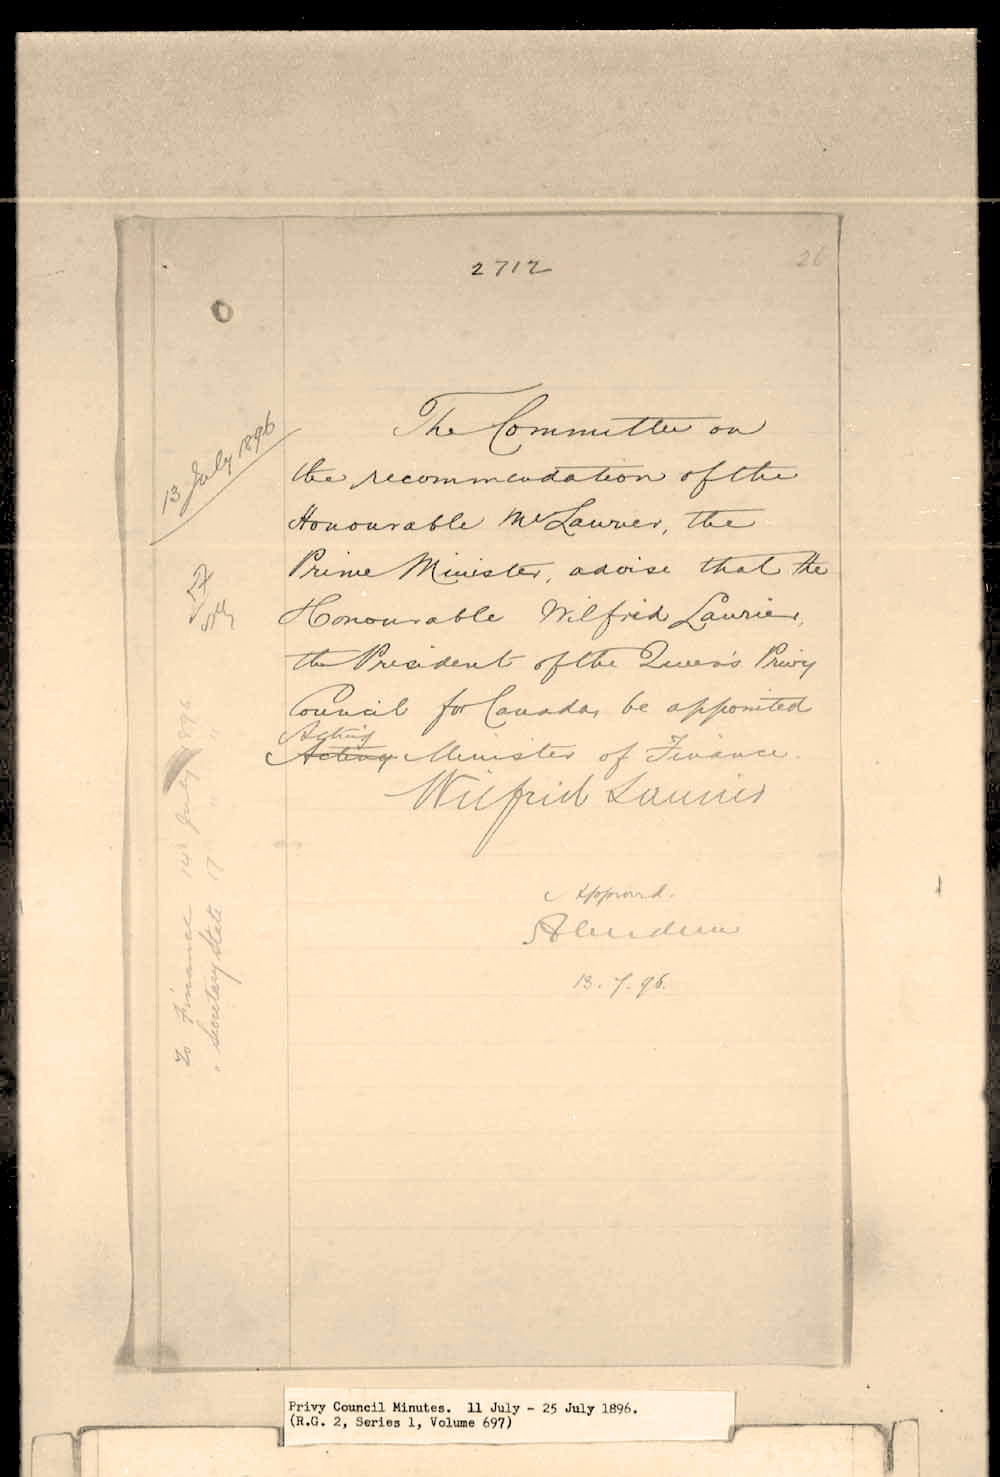 2712
26
13 July 1896
The Committee on
the recommendation of the
Honourable Mr Laurier, the
Prime Minister, advise that the
Honourable Wilfrid Laurier,
the President of the Queen's Privy
Council for Canada, be appointed
Acting
Acting Minister of Finance.
Wilfrid Laurier
Approved.
Aberdeen
13.7.96.
To Finance 14 July 1896
" Secretary State 17 " "
Privy Council Minutes. 11 July - 25 July 1896.
(R.G. 2, Series 1, Volume 697)